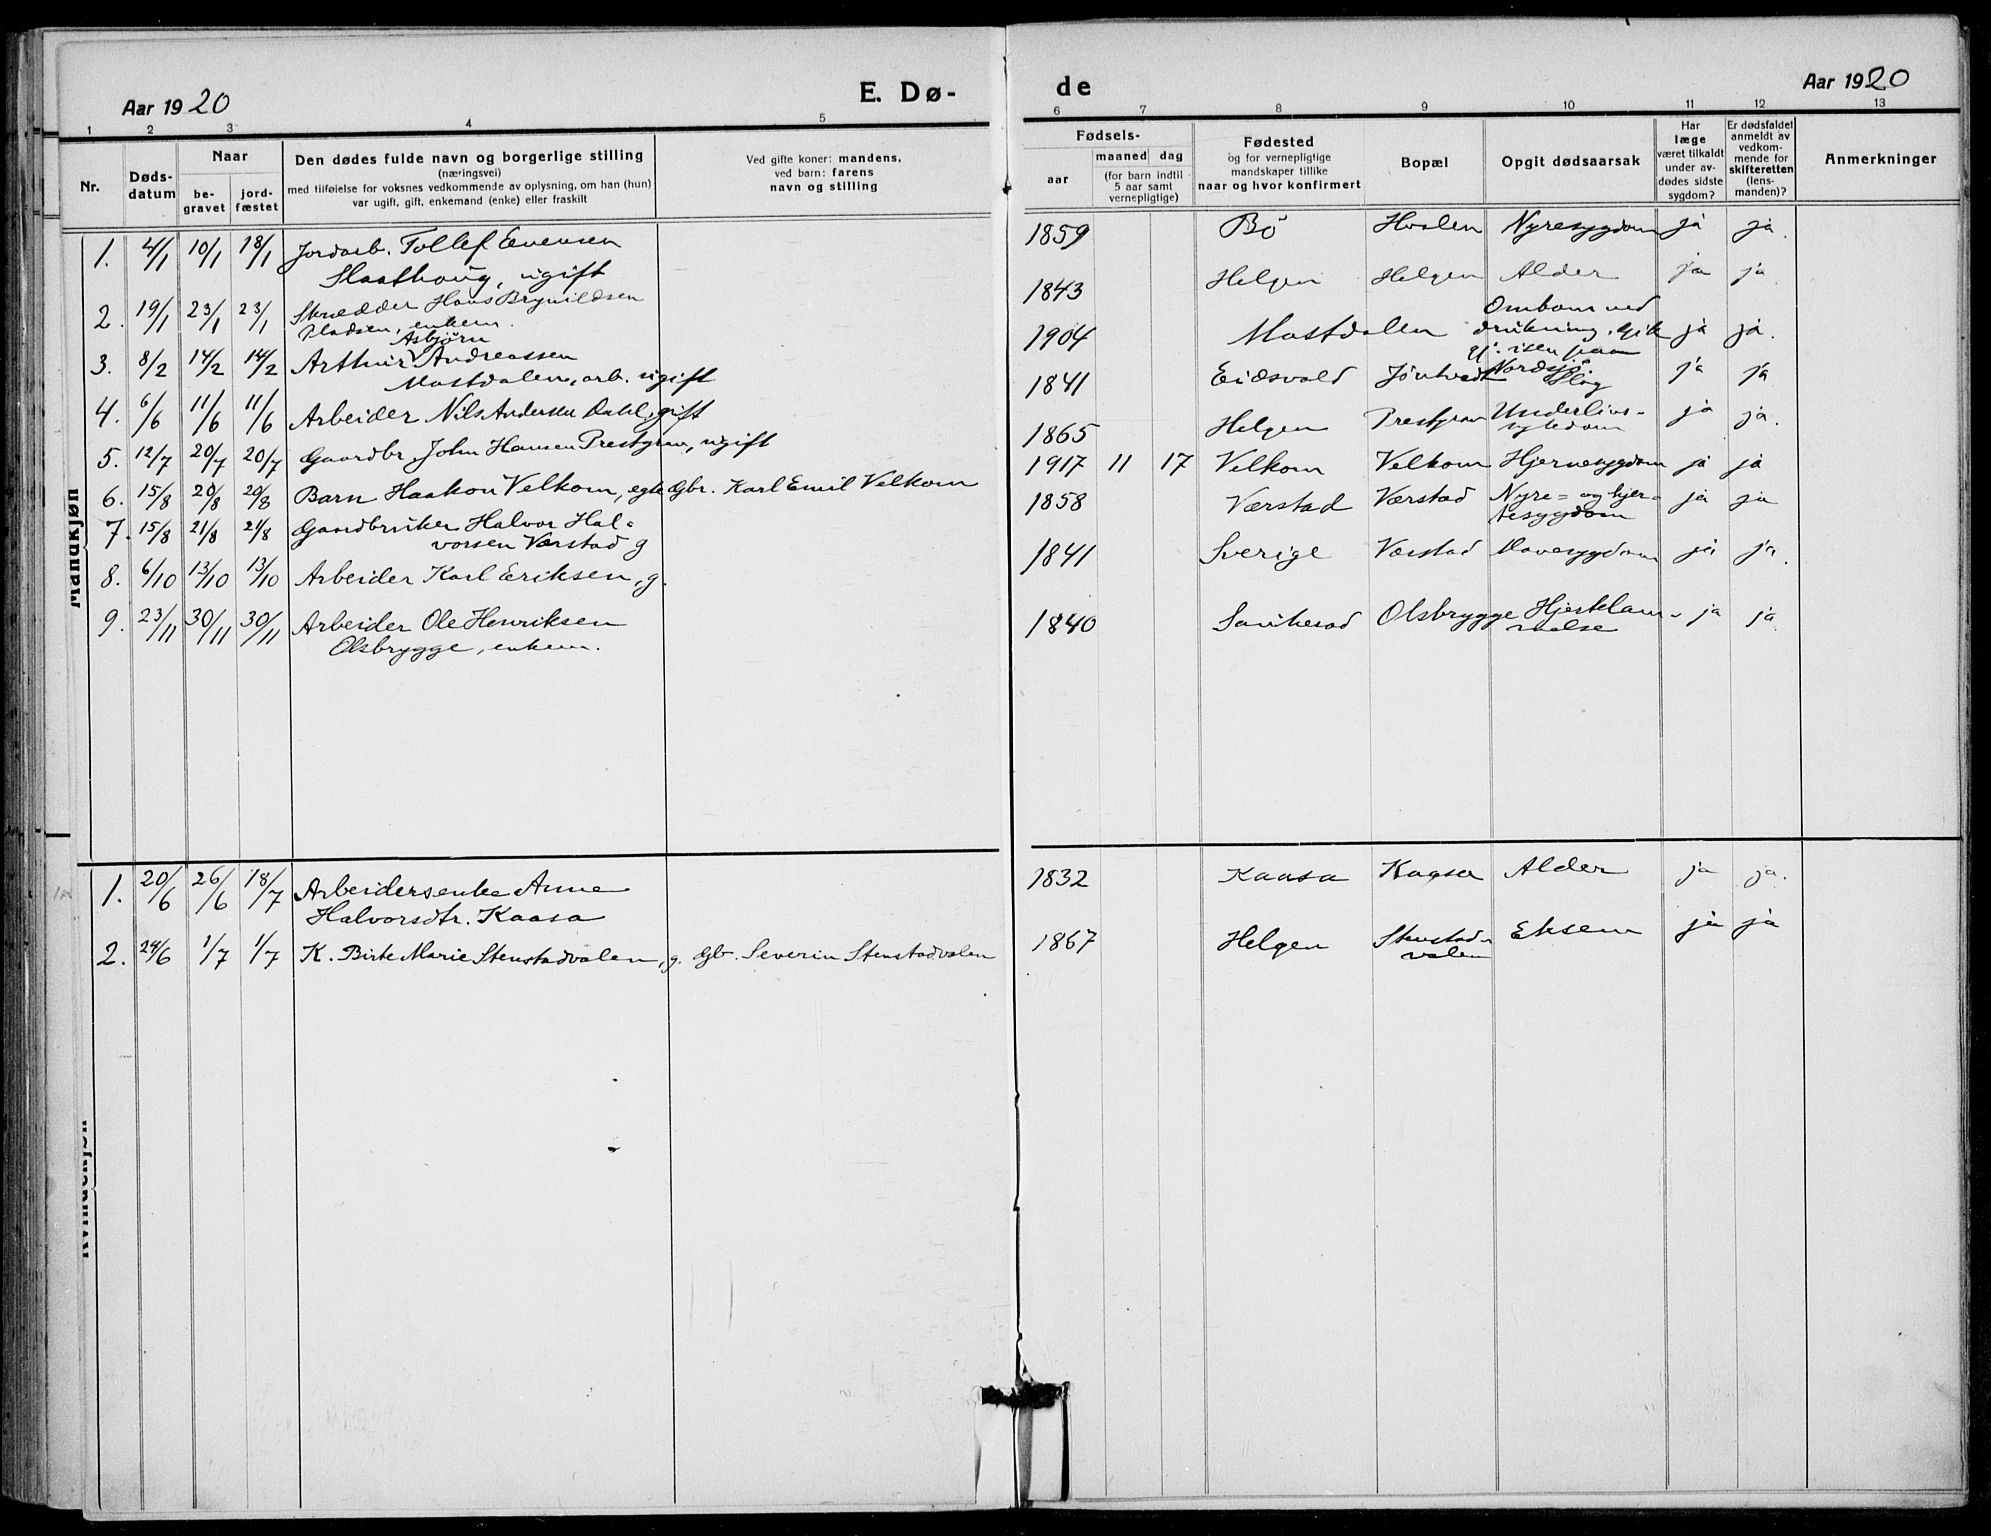 Aar 1920
E. Dø-
1 2 3 4 5
Nr.
Døds-
datum
Naar
be-
gravet
jord-
fæstet
Den dødes fulde navn og borgerlige stilling
(næringsvei)
med tilføielse for voksnes vedkommende av oplysning, om han (hun)
var ugift, gift, enkemand (enke) eller fraskilt
Ved gifte koner: mandens,
ved barn: farens
navn og stilling
Mandkjøn
1. 4/1 10/1 18/1 Jordarb. Tollef Evensen
Haathoug, ugift
2. 19/1 23/1 23/1 Skrædder Hans Brynildsen
Pladsen, enkem.
Asbjørn
3. 8/2 14/2 14/2 Arthur Andreassen
Mostdalen, arb. ugift
4. 6/6 11/6 11/6 Arbeider Nils Andersen Dahl, gift
5. 12/7 20/7 20/7 Gaardbr. John Hansen Prestgrav, ugift
6. 15/8 20/8 20/8 Barn Haakon Velkom, egte Gbr. Karl Emil Velkom
7. 15/8 21/8 21/8 Gaardbruker Halvor Hal-
vorsen Værstad g
8. 6/10 13/10 13/10 Arbeider Karl Eriksen, g.
9. 23/11 30/11 30/11 Arbeider Ole Henriksen
Olsbrygge, enkem.
Kvindekjøn
1. 20/6 26/6 18/7 Arbeidersenke Anne
Halvorsdtr. Kaasa
2. 24/6 1/7 1/7 K. Birte Marie Stenstadvalen, g. Gbr. Severin Stenstadvalen
de
Aar 1920
6 7 8 9 10 11 12 13
Fødsels-
aar
maaned dag
(for barn indtil
5 aar samt
vernepligtige)
Fødested
og for vernepligtige
mandskaper tillike
naar og hvor konfirmert
Bopæl
Opgit dødsaarsak
Har
læge
været tilkaldt
under av-
dødes sidste
sygdom?
Er dødsfaldet
anmeldt av
vedkom-
mende for
skifteretten
(lens-
manden)?
Anmerkninger
1859 Bö Hvalen Nyresygdom ja ja.
1843 Helgen Helgen Alder ja ja
Omkom ved
1904 Mostdalen drukning, gik ja ja.
gj. isen paa
Nordsjø
1841 Eidsvold Jöntvedt Slag ja ja
1865 Helgen Prestgrav Underlivs-
sykdom ja ja.
1917 11 17 Velkom Velkom Hjernesygdom ja ja
1858 Værstad Værstad Nyre- og hjer-
tesygdom ja ja
1841 Sverige Værstad Mavesygdom ja ja.
1840 Sauherad Olsbrygge Hjertelam-
melse ja ja.
1832 Kaasa Kaasa Alder ja ja.
1867 Helgen Stenstad-
valen Eksem ja ja